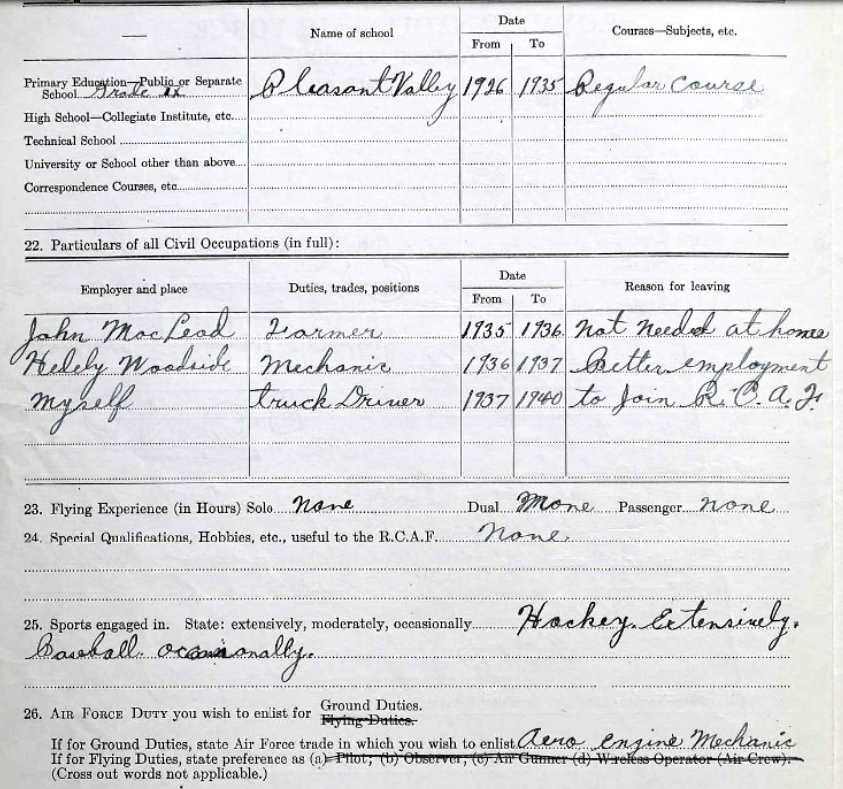 Name of school Date Courses—Subjects, etc.
From To
Primary Education—Public or Separate
School Grade ix Pleasant Valley 1926 1935 Regular Course
High School—Collegiate Institute, etc.
Technical School
University or School other than above
Correspondence Courses, etc.
22. Particulars of all Civil Occupations (in full):
Employer and place Duties, trades, positions Date Reason for leaving
From To
John MacLeod Farmer 1935 1936 not needed at home
Woodside Mechanic 1936 1937 Better employment
Myself truck Driver 1937 1940 to Join R.C.A.F.
23. Flying Experience (in Hours) Solo none Dual None Passenger none
24. Special Qualifications, Hobbies, etc., useful to the R.C.A.F. None
25. Sports engaged in. State: extensively, moderately, occasionally Hockey. Extensively.
Baseball. occasionally.
26. AIR FORCE DUTY you wish to enlist for Ground Duties.
Flying Duties.
If for Ground Duties, state Air Force trade in which you wish to enlist Aero engine Mechanic
If for Flying Duties, state preference as (a) Pilot; (b) Observer; (c) Air Gunner (d) Wireless Operator (Air Crew).
(Cross out words not applicable.)